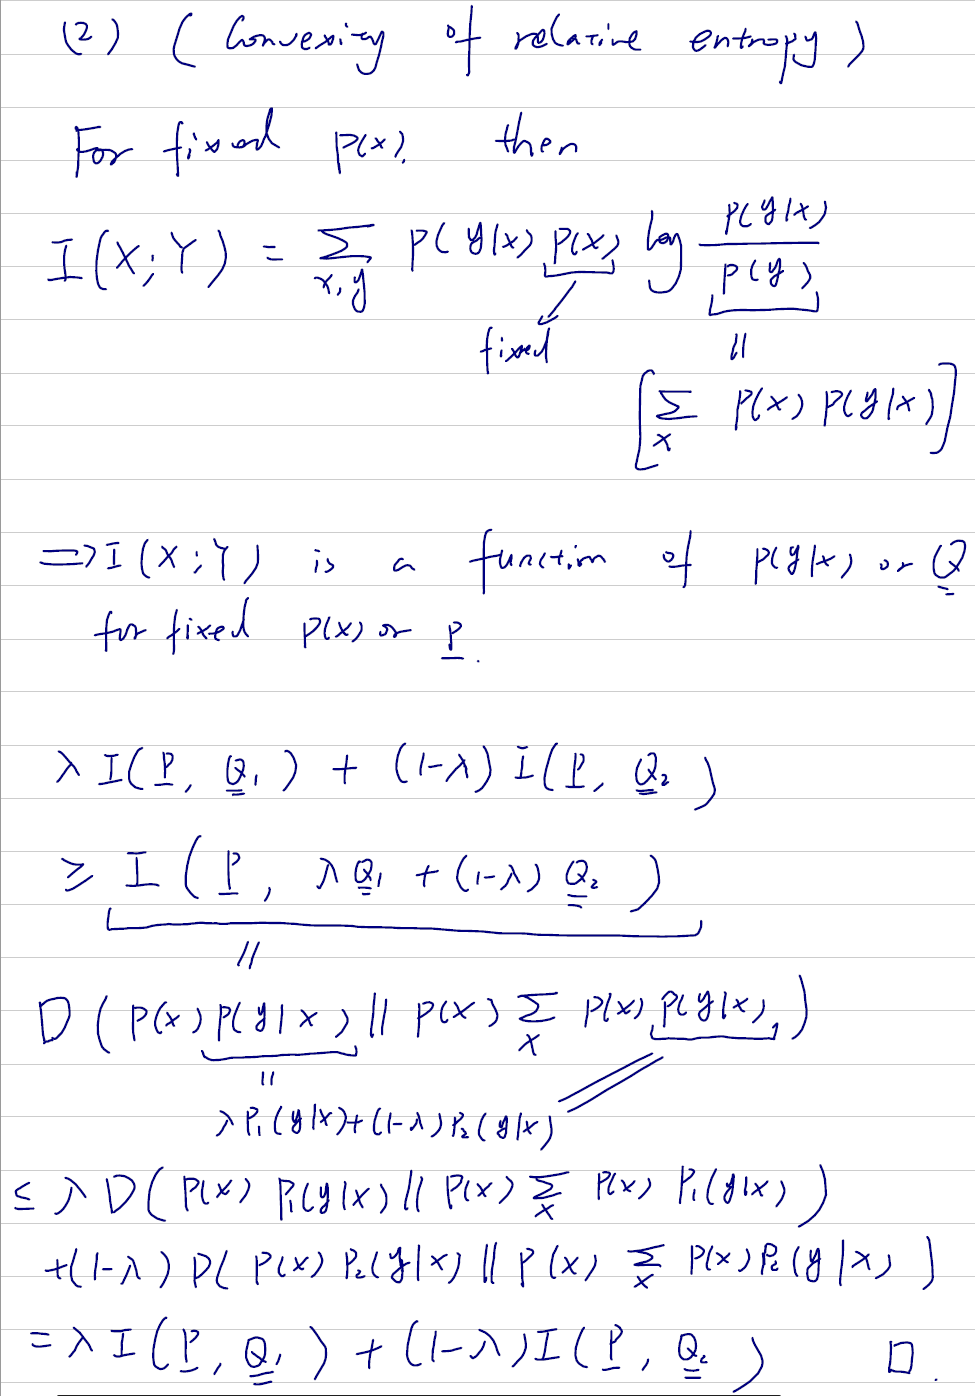 (2) ( Convexity of relative entropy )
For fixed P(x), then
I(X;Y) = Σ_{x,y} P(y|x) P(x) log P(y|x) / P(y)
fixed ||
[Σ_x P(x) P(y|x)]
⇒ I(X;Y) is a function of P(y|x) or Q
for fixed P(x) or P.
λ I(P, Q₁) + (1-λ) I(P, Q₂)
≥ I(P, λQ₁ + (1-λ) Q₂)
||
D(P(x) P(y|x) || P(x) Σ_x P(x) P(y|x))
||
λ P₁(y|x) + (1-λ) P₂(y|x)
≤ λ D(P(x) P₁(y|x) || P(x) Σ_x P(x) P₁(y|x))
+(1-λ) D(P(x) P₂(y|x) || P(x) Σ_x P(x) P₂(y|x))
= λ I(P, Q₁) + (1-λ) I(P, Q₂) □.